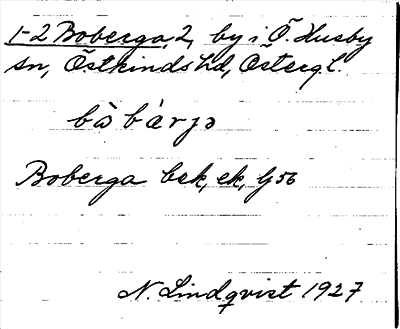 1-2 Boberga, 2, by i Ö. Husby
sn, Östkinds hd, Östergl.
bò bærjɔ
Boberga bek, ek, G 56
N. Lindqvist 1927